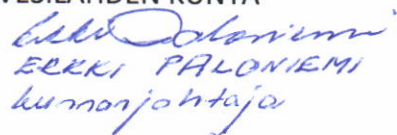 VESILAHDEN KUNTA
Erkki Paloniemi
ERKKI PALONIEMI
kunnanjohtaja